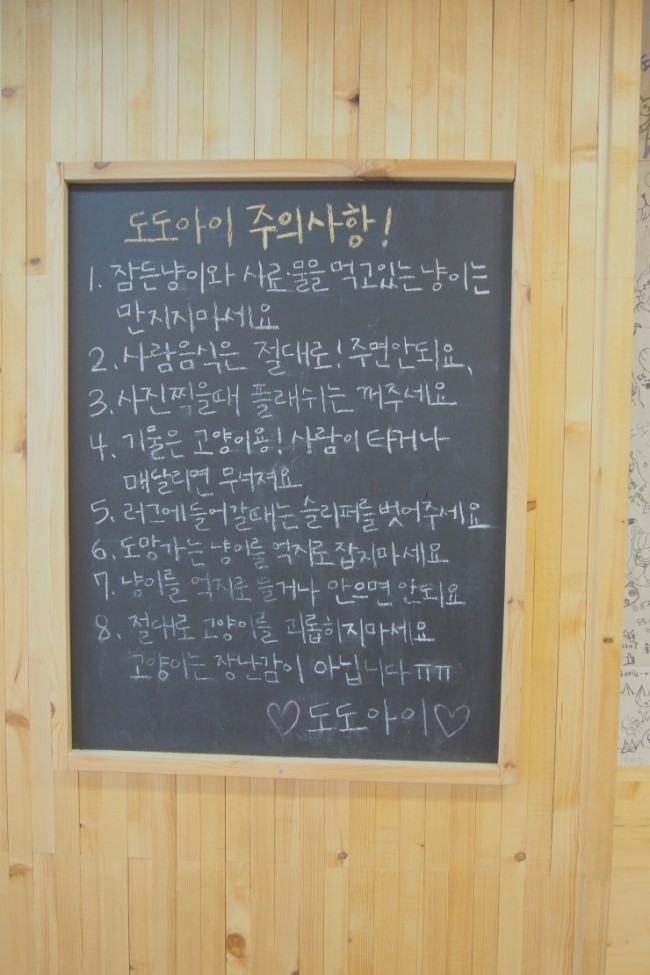 도도아이 주의사항!
1. 잠든냥이와 사료·물을 먹고있는 냥이는
만지지마세요
2. 사람음식은 절대로! 주면안되요.
3. 사진찍을때 플래쉬는 꺼주세요
4. 기물은 고양이용! 사람이 타거나
매달리면 무너져요
5. 러그에 들어갈때는 슬리퍼를 벗어주세요
6. 도망가는 냥이를 억지로 잡지마세요
7. 냥이를 억지로 들거나 안으면 안되요
8. 절대로 고양이를 괴롭히지마세요
고양이는 장난감이 아닙니다ㅠㅠ
♡도도아이♡